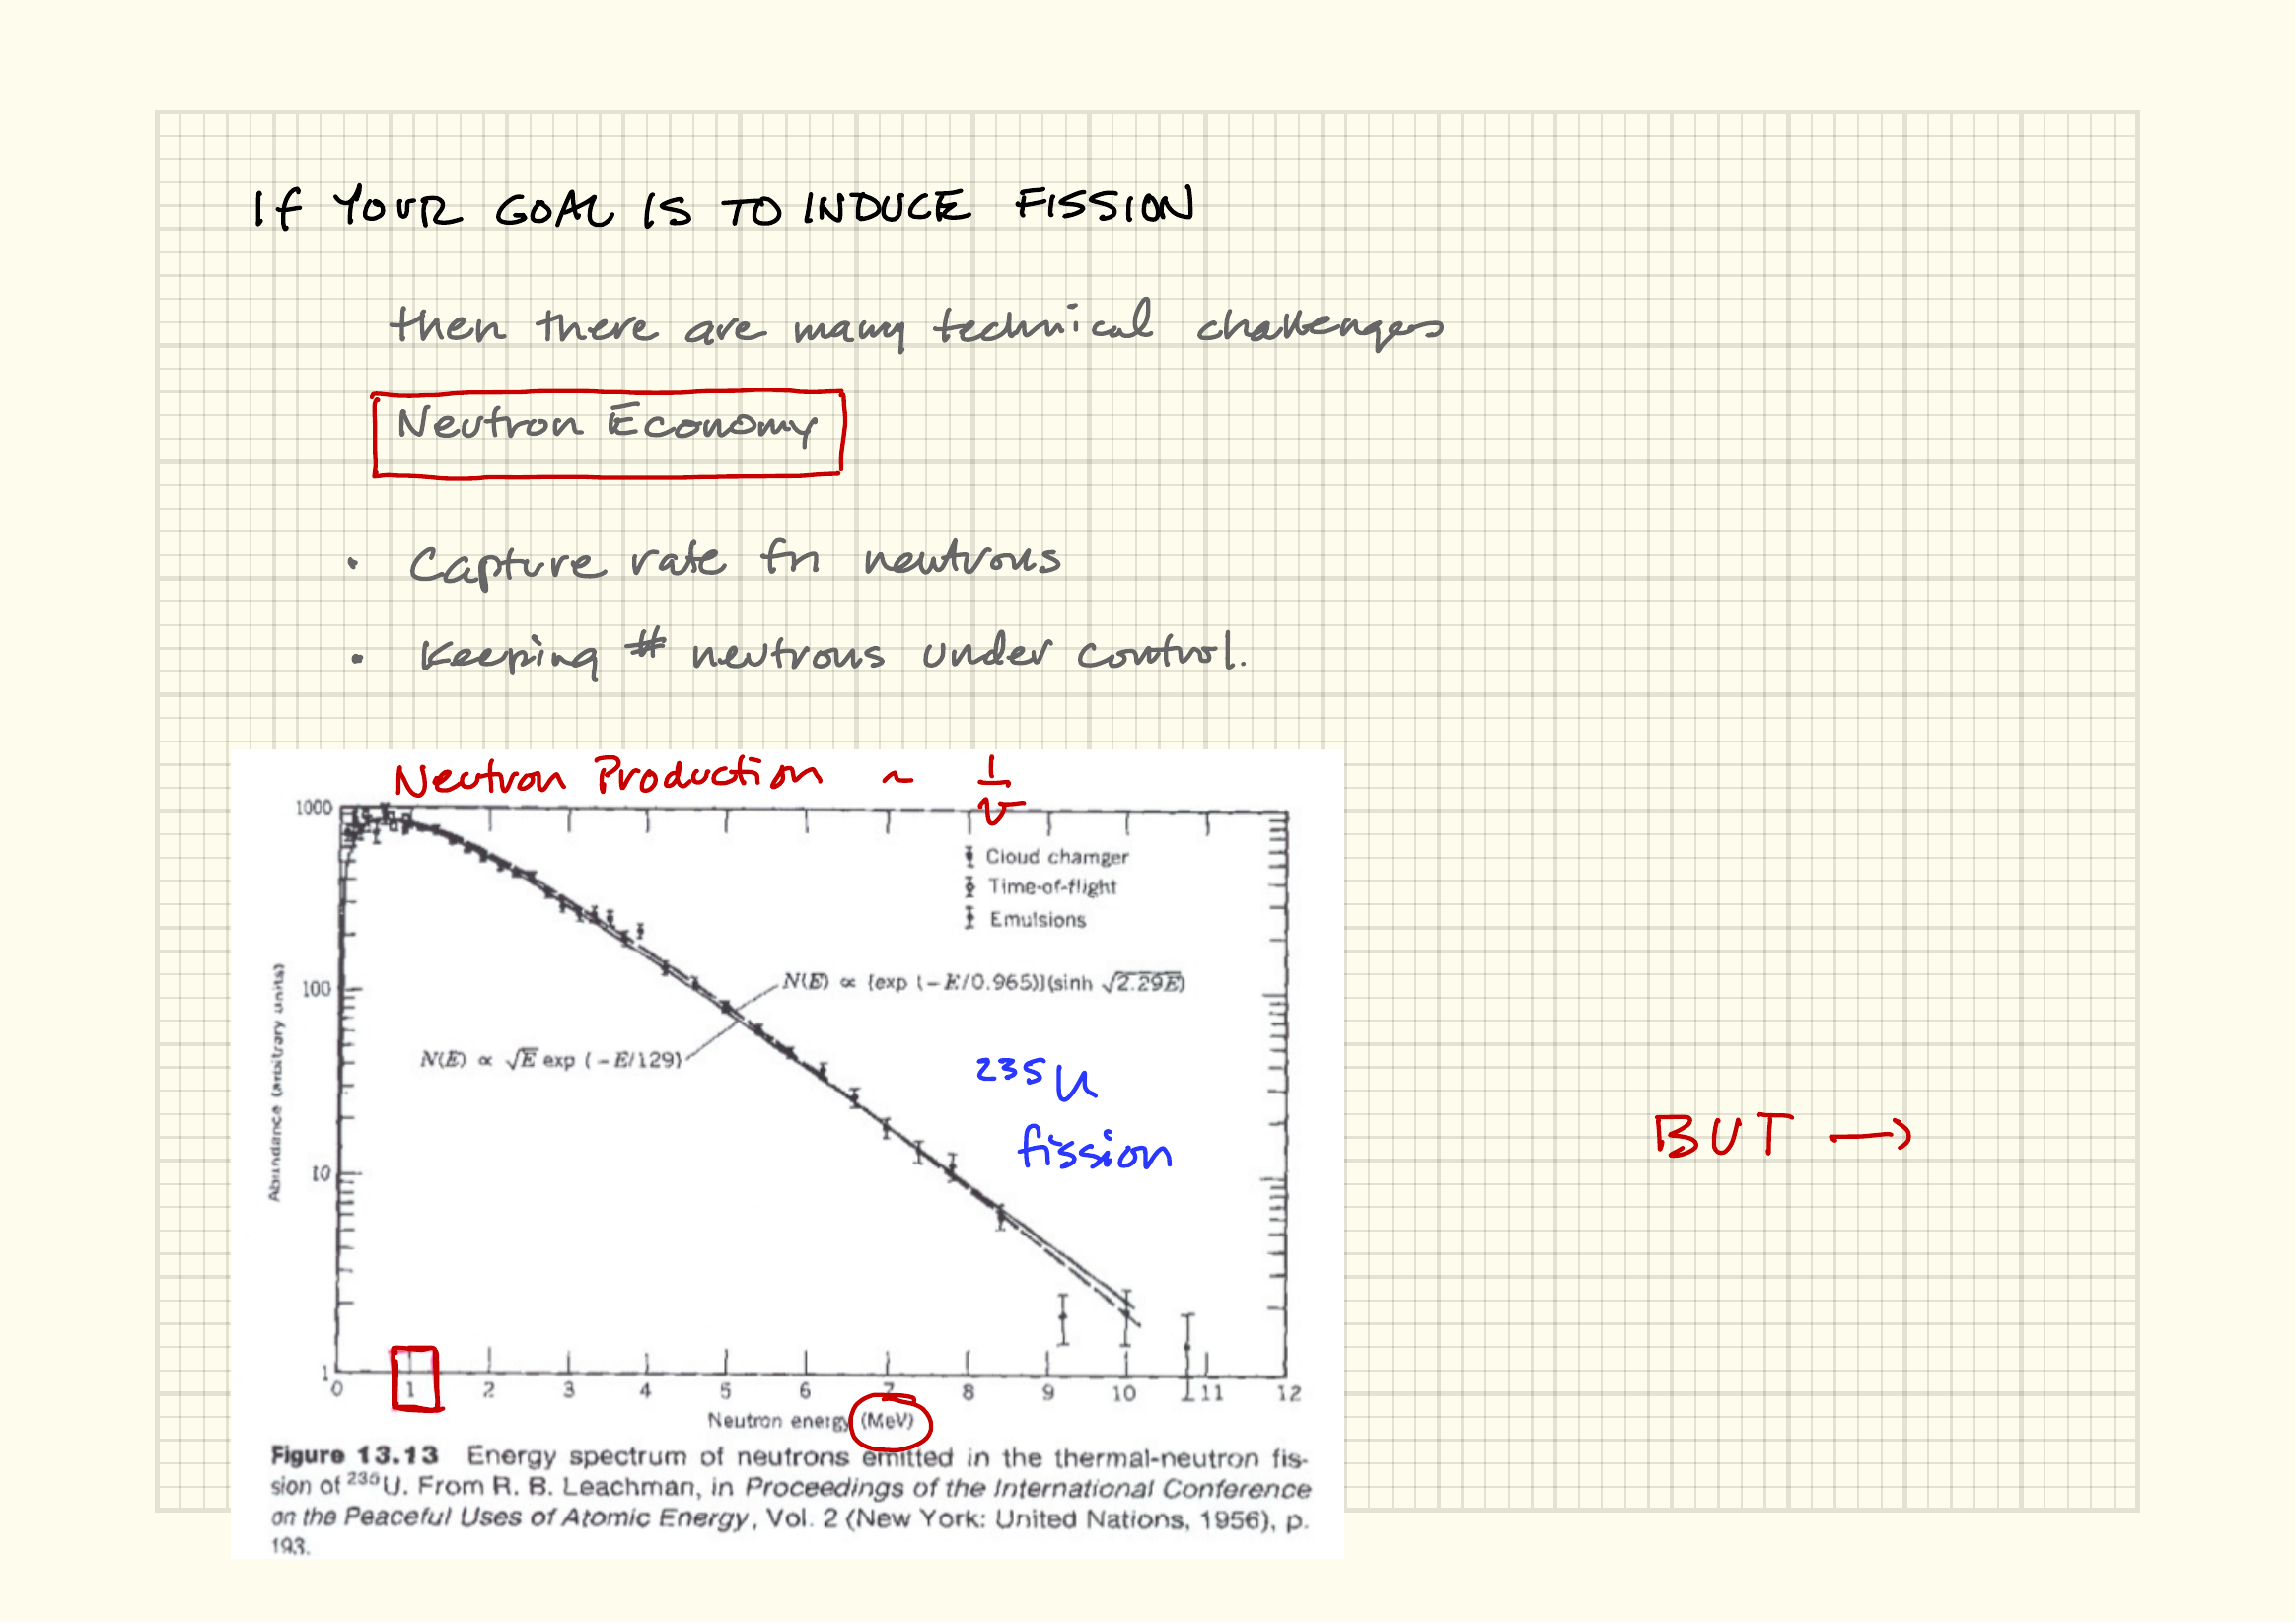 If YOUR GOAL IS TO INDUCE FISSION
then there are many technical challenges
Neutron Economy
• Capture rate fn neutrons
• Keeping # neutrons under control.
Neutron Production ~ 1/v
1000
Cloud chamger
Time-of-flight
Emulsions
N(E) ∝ [exp (−E/0.965)](sinh √2.29E)
100
N(E) ∝ √E exp (−E/129)
235U
fission
BUT →
10
Abundance (arbitrary units)
1
0 1 2 3 4 5 6 7 8 9 10 11 12
Neutron energy (MeV)
Figure 13.13 Energy spectrum of neutrons emitted in the thermal-neutron fis-
sion of 235U. From R. B. Leachman, in Proceedings of the International Conference
on the Peaceful Uses of Atomic Energy, Vol. 2 (New York: United Nations, 1956), p.
193.